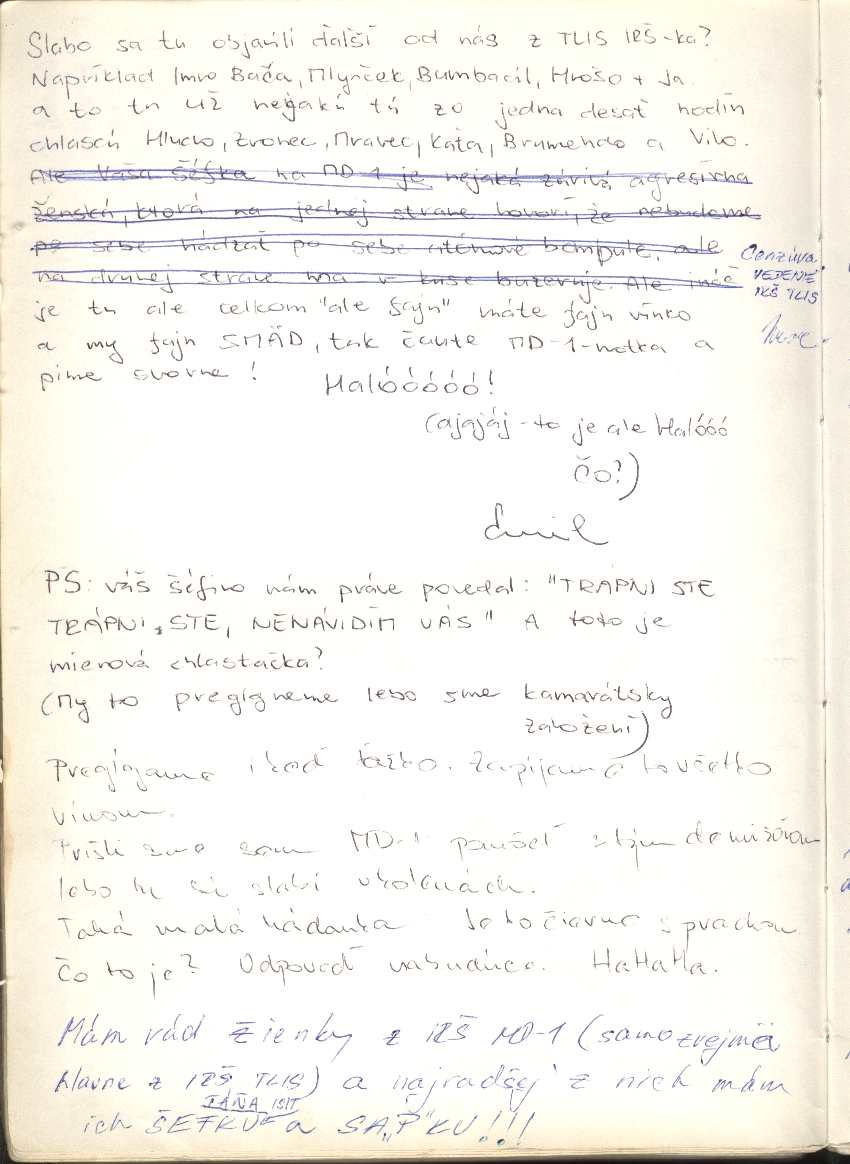 Slabo sa tu objavili ďalší od nás z TLIS IRŠ-ka?
Napríklad Imro Bača, Mlynček, Bumbacil, Hrošo + ja
a to tu už nejakú tú zo jedna desať hodín
chlascú Hluco, Zvonec, Mravec, Kaťa, Brumendo a Vilo.
Ale Vaša šéfka na MD-1 je nejaká zúrivá agresívna
ženská, ktorá na jednej strane hovorí, že nebudeme
po sebe hádzať po sebe atómové bombule, ale
na druhej strane ma v kuse buzeruje. Ale ináč
Cenzúra
VEDENIE
IRŠ TLIS
je tu ale celkom "ale fajn" máte fajn vínko
a my fajn SMÄD, tak čaute MD-1-notka a
pime svorne!
Halóóóóó!
(ajajáj - to je ale Halóóó
Čo?)
Emil
PS: váš šéfino nám práve povedal: "TRÁPNI STE
TRÁPNI, STE, NENÁVIDÍM VÁS" A toto je
mierová chlastačka?
(My to pregígneme lebo sme kamarátsky
založení)
Pregígame i keď ťažko. Zapíjame to všetko
vínom.
Prišli sme sem MD-1 pomôcť s tým demižónom
lebo tu sú slabí v kolenách.
Taká malá hádanka Je to čierne s prachom
Čo to je? Odpoveď nabudúce. HaHaHa.
Mám rád žienky z IRŠ MD-1 (samozrejme
hlavne z IRŠ TLIS) a najradšej z nich mám
TÁŇA ISIT
ich ŠÉFKU a SA„P"KU!!!